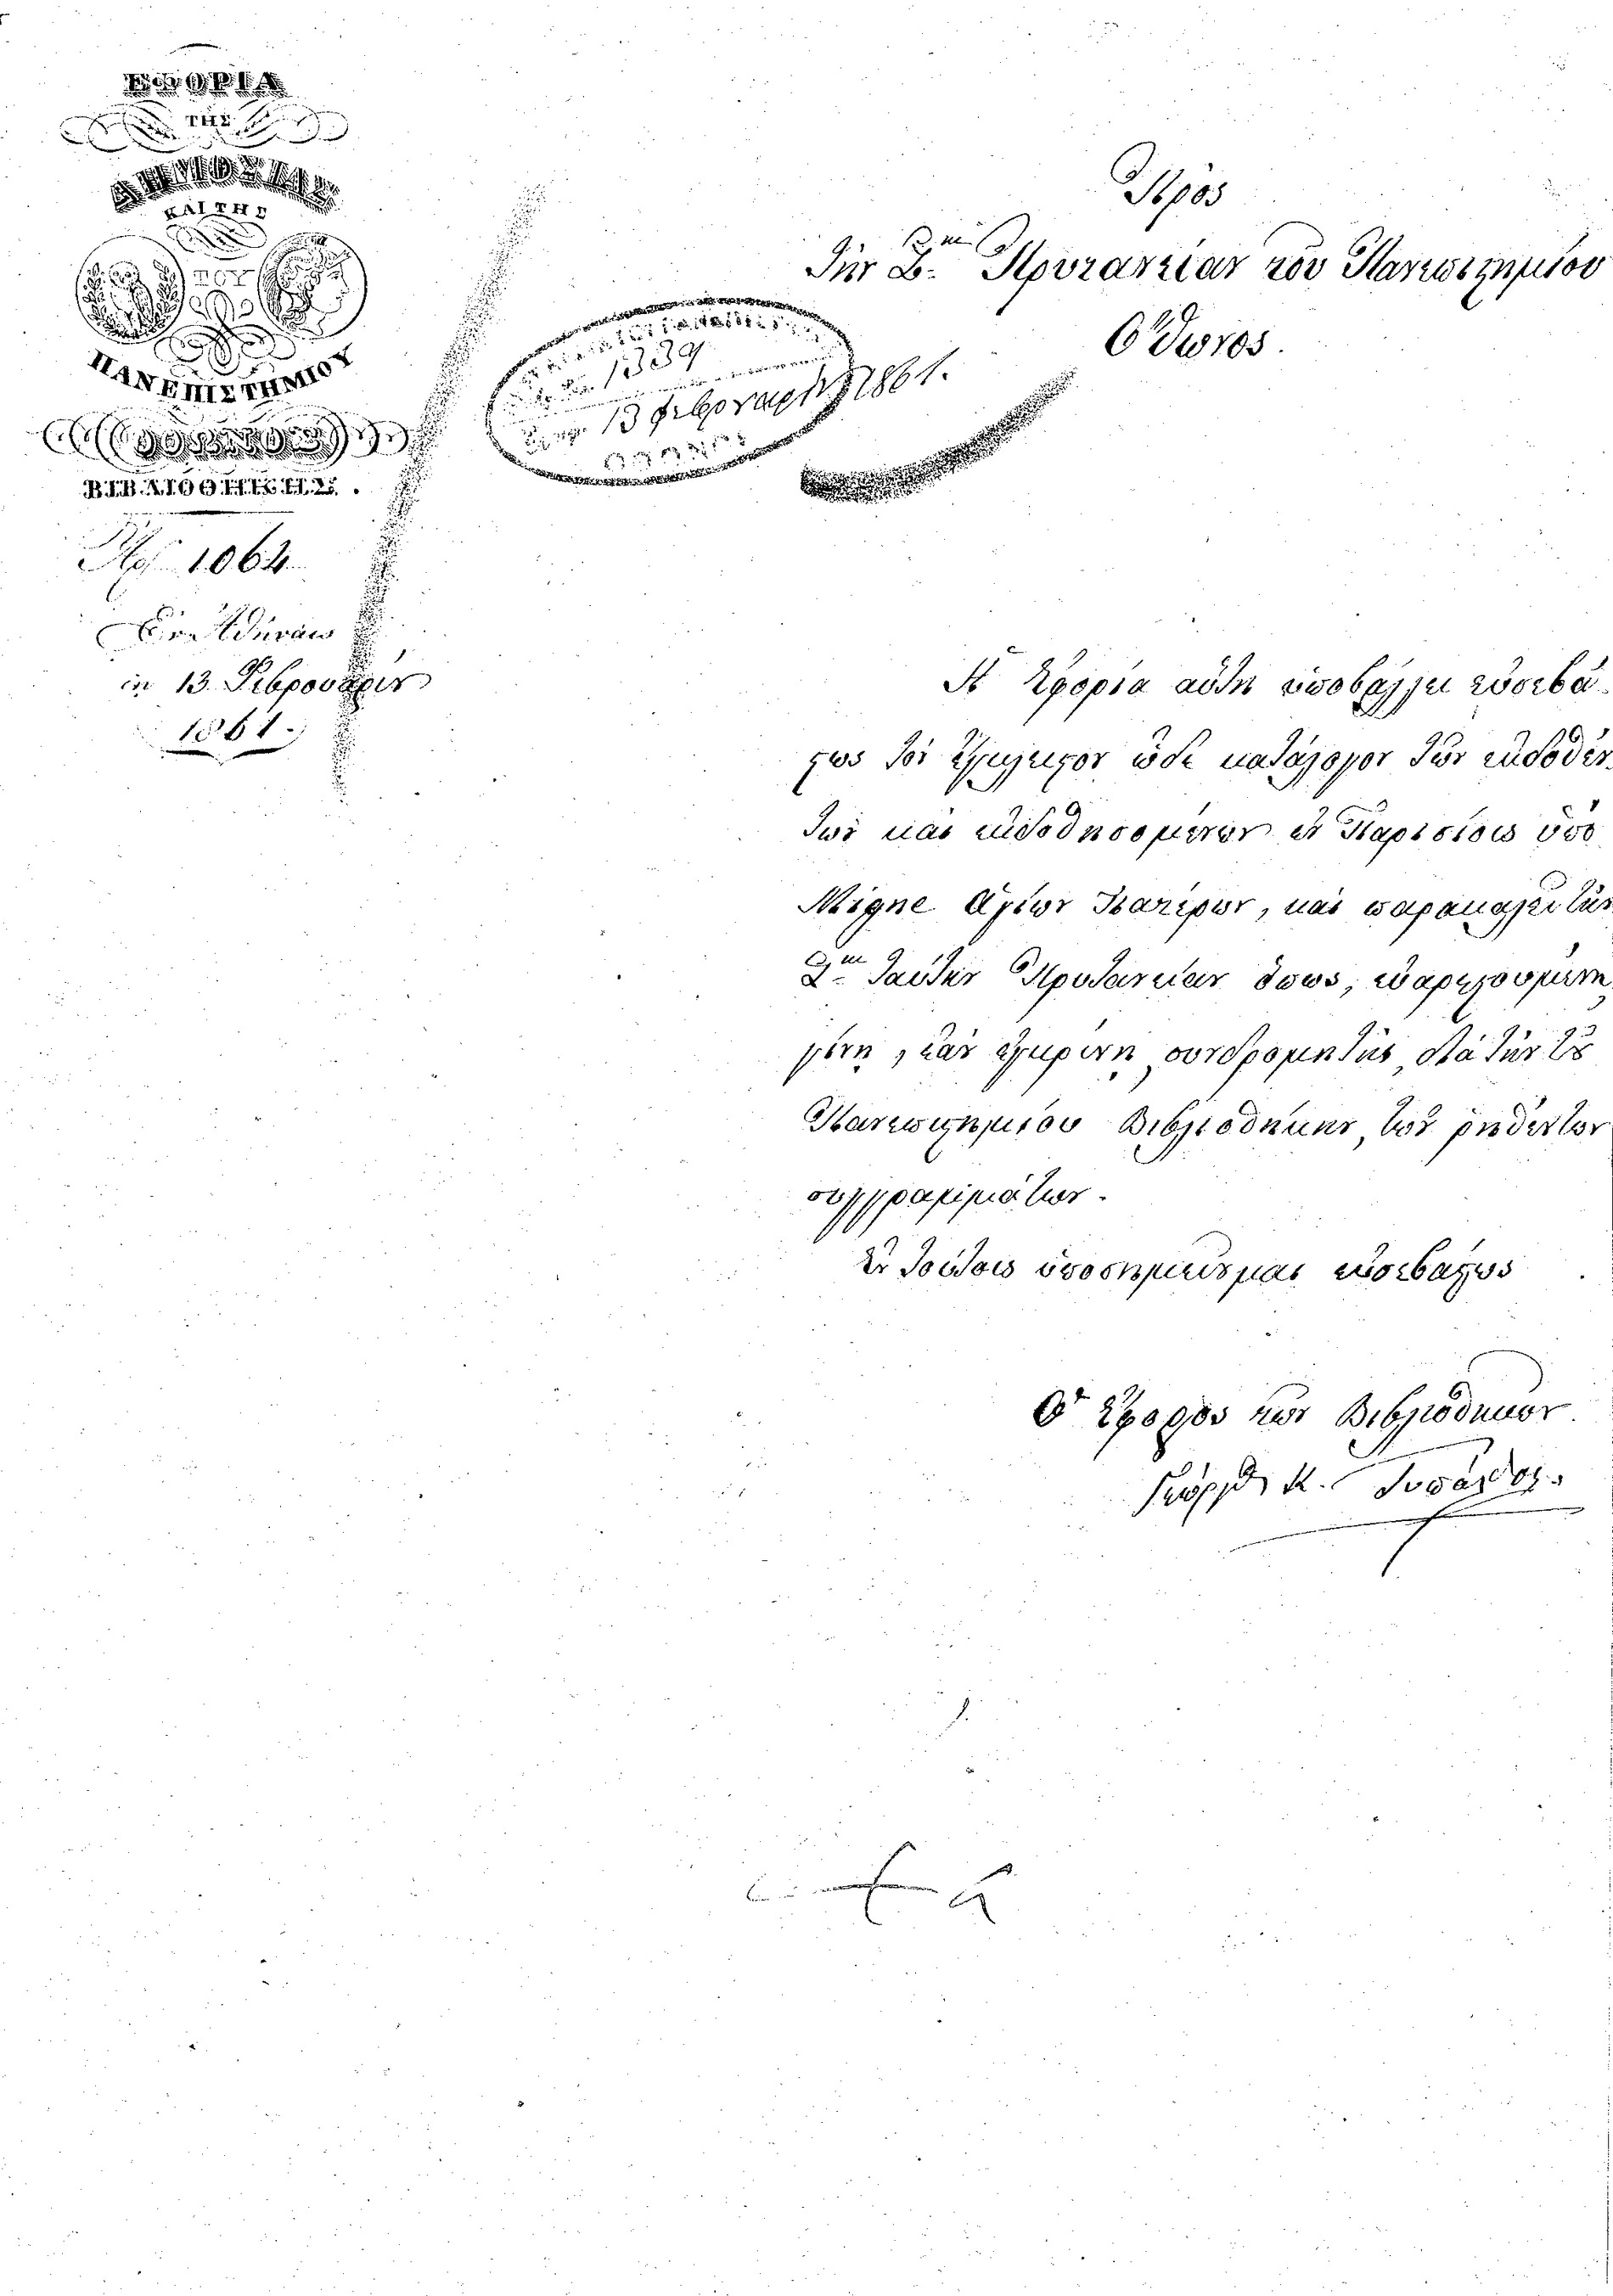 ΕΦΟΡΙΑ
ΤΗΣ
ΔΗΜΟΣΙΑΣ
ΚΑΙ ΤΗΣ
ΤΟΥ
ΠΑΝΕΠΙΣΤΗΜΙΟΥ
ΒΙΒΛΙΟΘΗΚΗΣ.
Ἀρ. 1064
Ἐν Ἀθήναις
τῇ 13 Φεβρουαρίου
1861.
1339
13 Φεβρουαρίου 1861.
Πρὸς
Τὴν Σ. Πρυτανείαν τοῦ Πανεπιστημίου
Ὄθωνος.
Ἡ Ἐφορία αὕτη ὑποβάλλει εὐσεβά
στως τὸν ἔγκλειστον ὧδε κατάλογον τῶν ἐκδοθέν
των καὶ ἐκδοθησομένων ἐν Παρισίοις ὑπὸ
Migne Ἁγίων Πατέρων, καὶ παρακαλεῖ τὴν
Σ. ταύτην Πρυτανείαν ὅπως,
μένη, καὶ ἐγκρίνῃ συνδρομητὰς, διὰ τὴν τοῦ
Πανεπιστημίου Βιβλιοθήκην, τῶν ῥηθέντων
συγγραμμάτων.
Ἐν τούτοις ὑποσημειοῦμαι εὐσεβάστως
Ὁ Ἔφορος τῶν Βιβλιοθηκῶν
Γεώργιος Κ. Τυπάλδος.